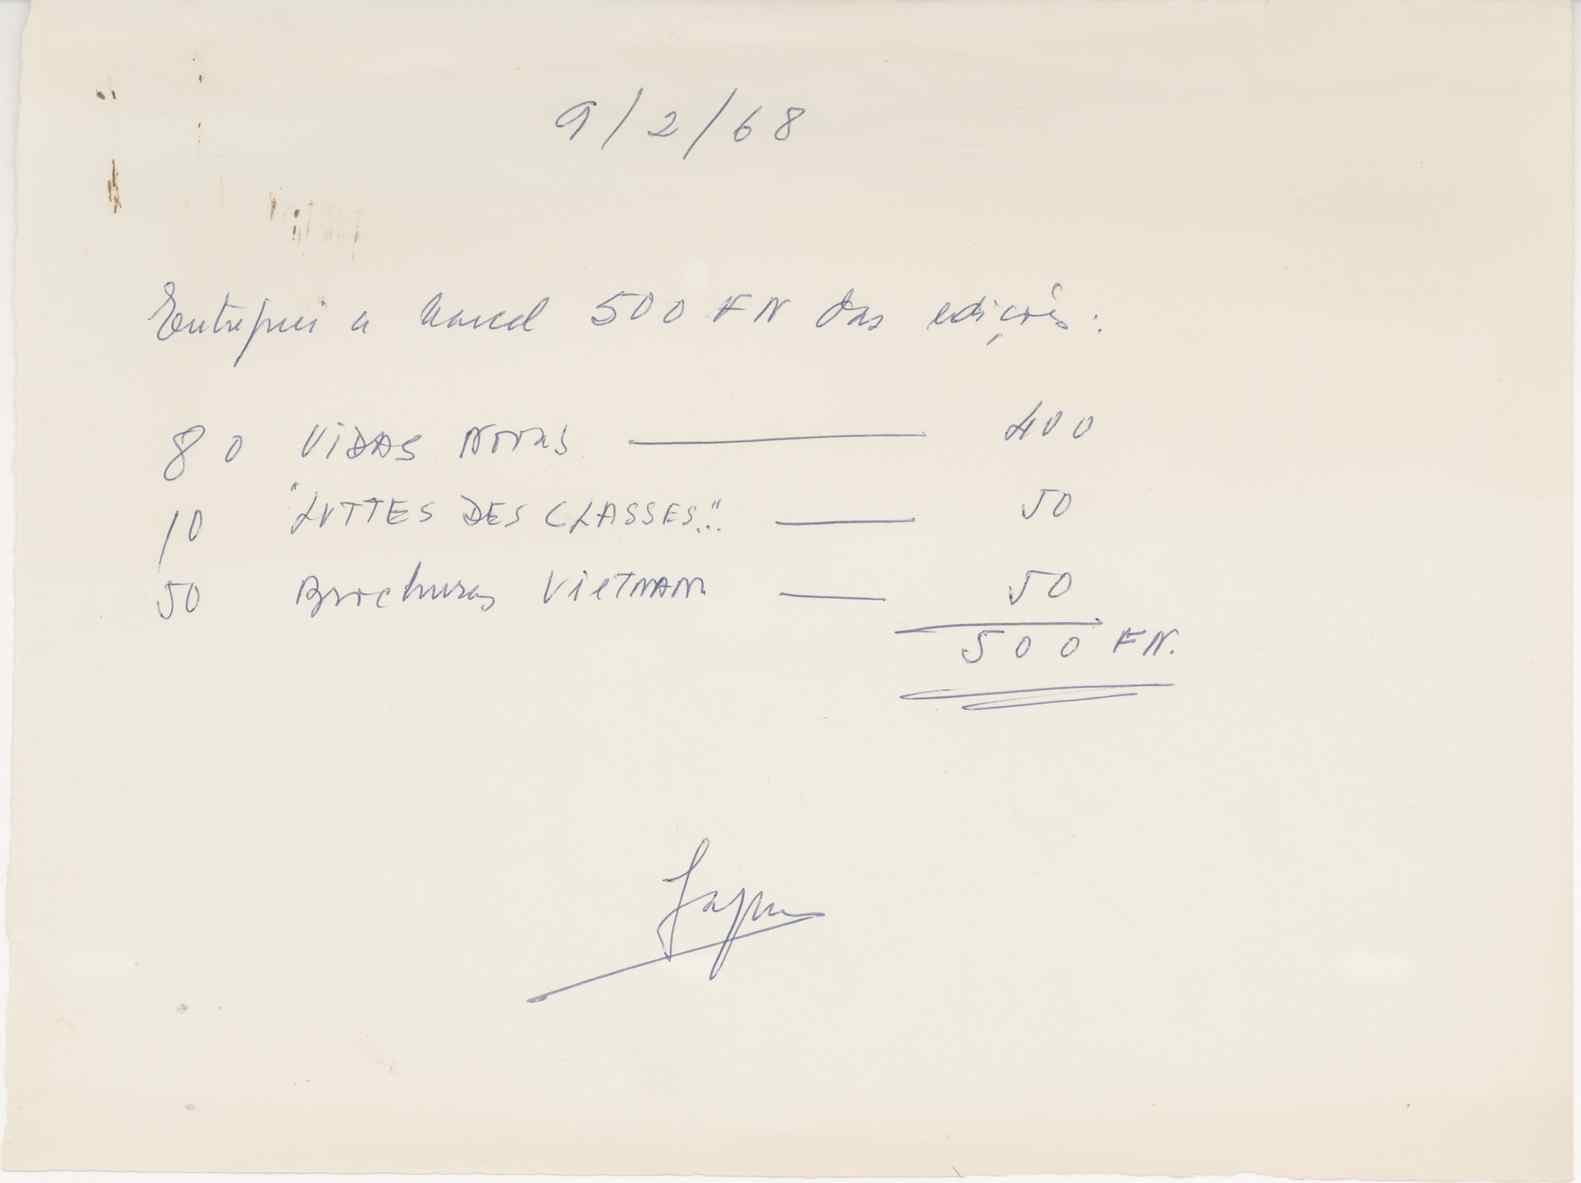 9/2/68
Entreguei a Marcel 500 FN das edições:
80 VIDAS NOVAS 400
10 "LUTTES DES CLASSES..." 50
50 Brochuras VIETNAM 50
500 FN.